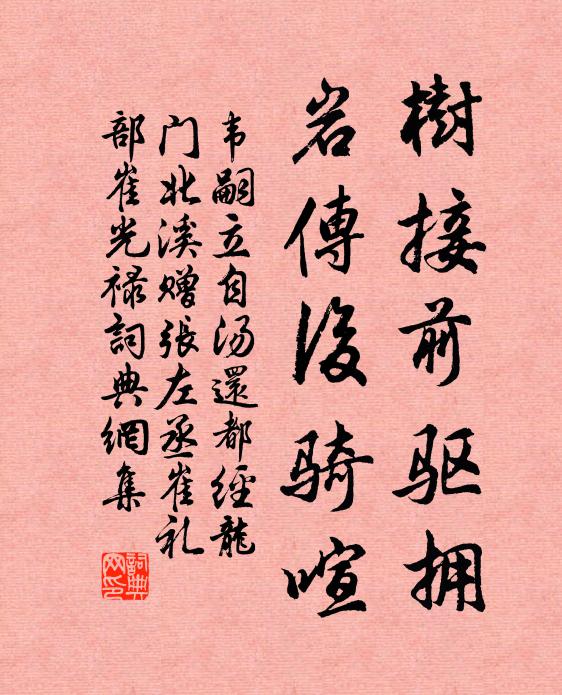 樹接前驱拥
岩傳後骑喧
韦嗣立自汤還都經龍
门北溪赠張左丞崔礼
部崔光禄詞典網集
詞典
网印